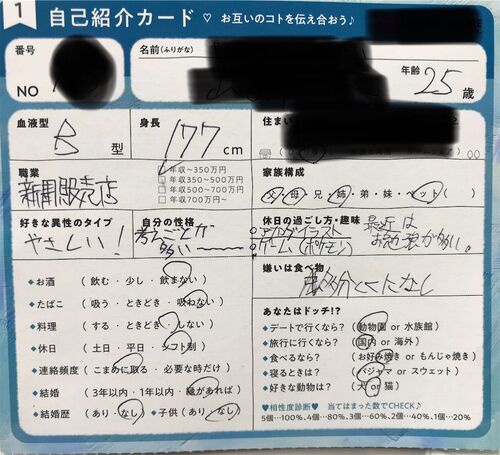 1 自己紹介カード ♡ お互いのコトを伝え合おう♪
番号
NO
名前(ふりがな)
年齢 25 歳
血液型
B 型
身長
177 cm
住まい
職業
新聞販売店
年収～350万円
年収350～500万円
年収500～700万円
年収700万円～
家族構成
父・母・兄・姉・弟・妹・ペット( )
好きな異性のタイプ
やさしい!
自分の性格
考えごとが
多い
休日の過ごし方・趣味
アナログイラスト
ゲーム(ポケモン)
最近は
お勉強が多い。
嫌いは食べ物
多分とくになし
◆お酒 ( 飲む・少し・飲まない )
◆たばこ ( 吸う・ときどき・吸わない )
◆料理 ( する・ときどき・しない )
◆休日 ( 土日・平日・シフト制 )
◆連絡頻度 ( こまめに取る・必要な時だけ )
◆結婚 ( 3年以内・1年以内・縁があれば )
◆結婚歴 ( あり・なし ) ◆子供 ( あり・なし )
あなたはドッチ!?
◆デートで行くなら? ( 動物園 or 水族館 )
◆旅行に行くなら? ( 国内 or 海外 )
◆食べるなら? ( お好み焼き or もんじゃ焼き )
◆寝るときは? ( パジャマ or スウェット )
◆好きな動物は? ( 犬 or 猫 )
♥相性度診断♥ 当てはまった数でCHECK♪
5個…100%、4個…80%、3個…60%、2個…40%、1個…20%